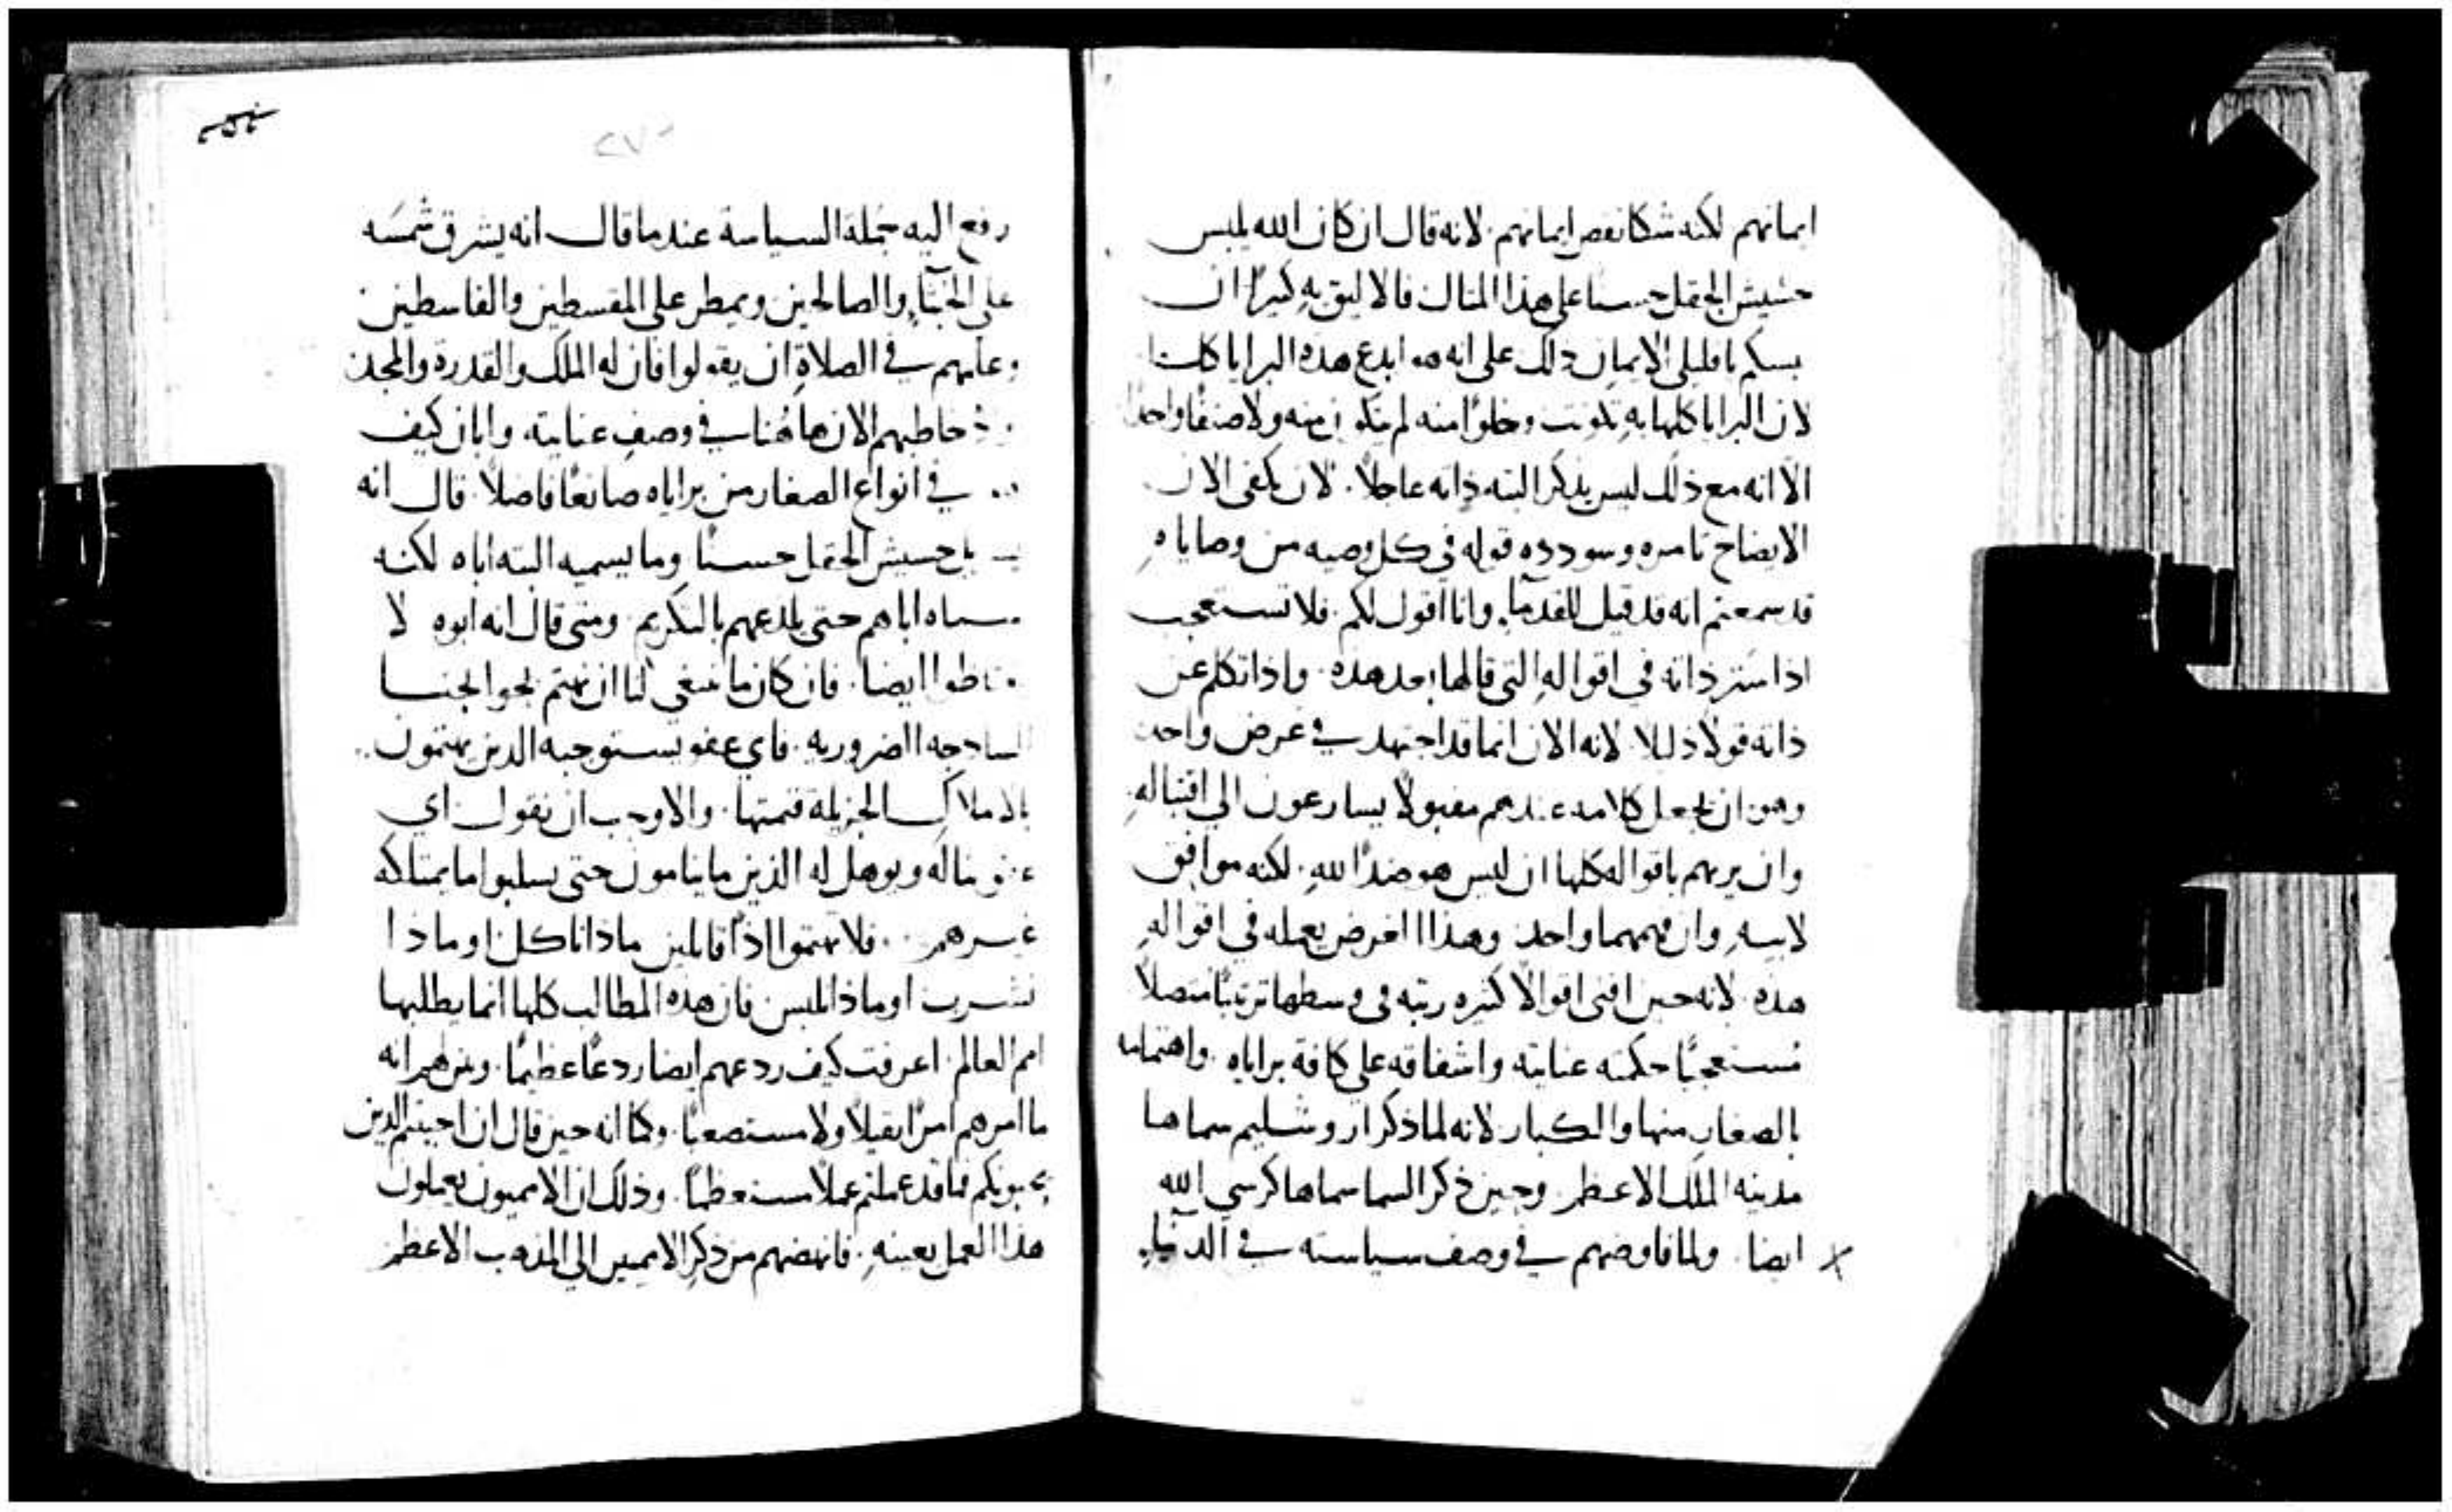 ايمانهم لكنه شكا نقص ايمانهم. لانه قال ان كان الله يلبس
حشيش الحقل حسنا على هذا المثال فالاليق به كثيرًا ان
يسكم يا قليلي الايمان ذلك على انه هو ابدع هذه البرايا كلها
لان البرايا كلها به تكونت وخلوًا منه لم يتكون منه ولا صنفًا واحدًا
الا انه مع ذلك ليس يذكر البته ذاته عاجلاً. لان يكفى الان
الايضاح تامره وسودده قوله في كل وصيه من وصاياه
قد سمعتم انه قد قيل للقدمآ. وانا اقول لكم. فلا تستعجب
اذا ستر ذاته في اقواله التي قالها بعد هذه. واذا تكلم عن
ذاته قولا ذليلا. لانه الان انما قد اجتهد في عرض واحد
وهو ان يجعل كلامه عندهم مقبولاً يسارعون الى اقتباله
وان يريهم باقواله كلها ان ليس هو ضدًا لله. لكنه موافق
لابيه وان فهمهما واحد وهذا الغرض يعمله في اقواله
هذه. لانه حين افنى اقوالاً كثيره رتبه في وسطها ترتيبًا متصلاً
مستعجبًا حكمته عنايته واشفاقه على كافة براياه. واهتمامه
بالصغار منها والكبار لانه لما ذكر اروشليم سماها
مدينه الملك الاعظم. وحين ذكر السما سماها كرسي الله
ايضا. ولما فاوضهم في وصف سياسته في الدنيا.
رفع اليه جملة السياسة عندما قال انه يشرق شمسه
على الخبثآء والصالحين ويمطر على المقسطين والقاسطين
وعلمهم في الصلاة ان يقولوا فان له الملك والقدرة والمجد
خاطبهم الان هاهُنا في وصف عنايته. وابان كيف
في انواع الصغار من براياه صانعًا فاضلاً. قال انه
يلبس حشيش الحقل حسنًا وما يسميه البته اباه لكنه
سماه اباهم حتى يلذعهم بالتكريم. ومتى قال انه ابوه لا
ايضا. فان كان ما ينبغي لنا ان نهتم نحو الجنسا
الساذجه الضروريه. فاي عفو يستوجبه الذين يهتمون
بالاملاك الجزيلة قيمتها. والاوجب ان نقول اي
عفو يناله ويوهل له الذين ما ينامون حتى يسلبوا ما يمتلكه
غيرهم. فلا تهتموا اذًا قائلين ماذا ناكل او ماذا
نشرب او ماذا نلبس فان هذه المطالب كلها انما يطلبها
امم العالم. اعرفت كيف ردعهم ايضا ردعًا عظيمًا. وبرهن انه
ما امرهم امرًا ثقيلاً ولا مستصعبًا. وكما انه حين قال ان احببتم الذين
يحبونكم فما قد عملتم عملاً مستعظمًا. وذلك ان الامميون يعملون
هذا العمل بعينه. فانهضهم من ذكر الامميين الى المذهب الاعظم